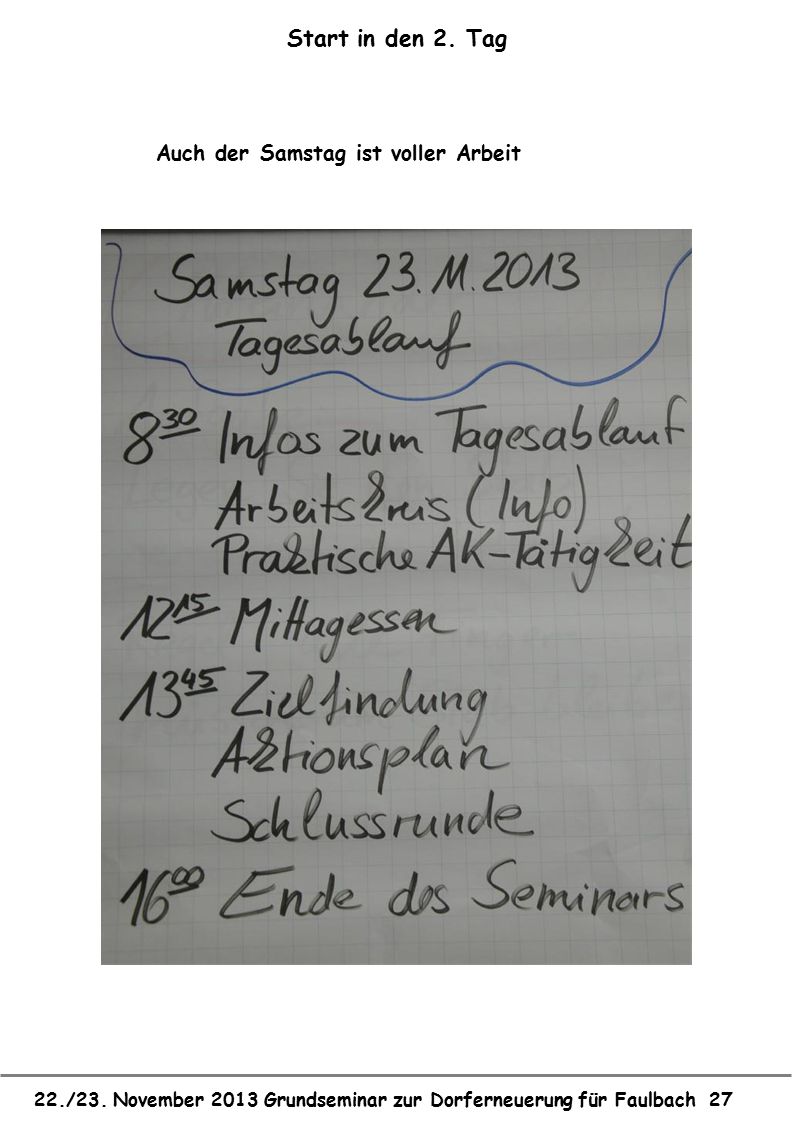 Start in den 2. Tag
Auch der Samstag ist voller Arbeit
Samstag 23.11.2013
Tagesablauf
8 30 Infos zum Tagesablauf
Arbeitskreis (Info)
Praktische AK-Tätigkeit
12 15 Mittagessen
13 45 Zielfindung
Aktionsplan
Schlussrunde
16 00 Ende des Seminars
22./23. November 2013 Grundseminar zur Dorferneuerung für Faulbach 27